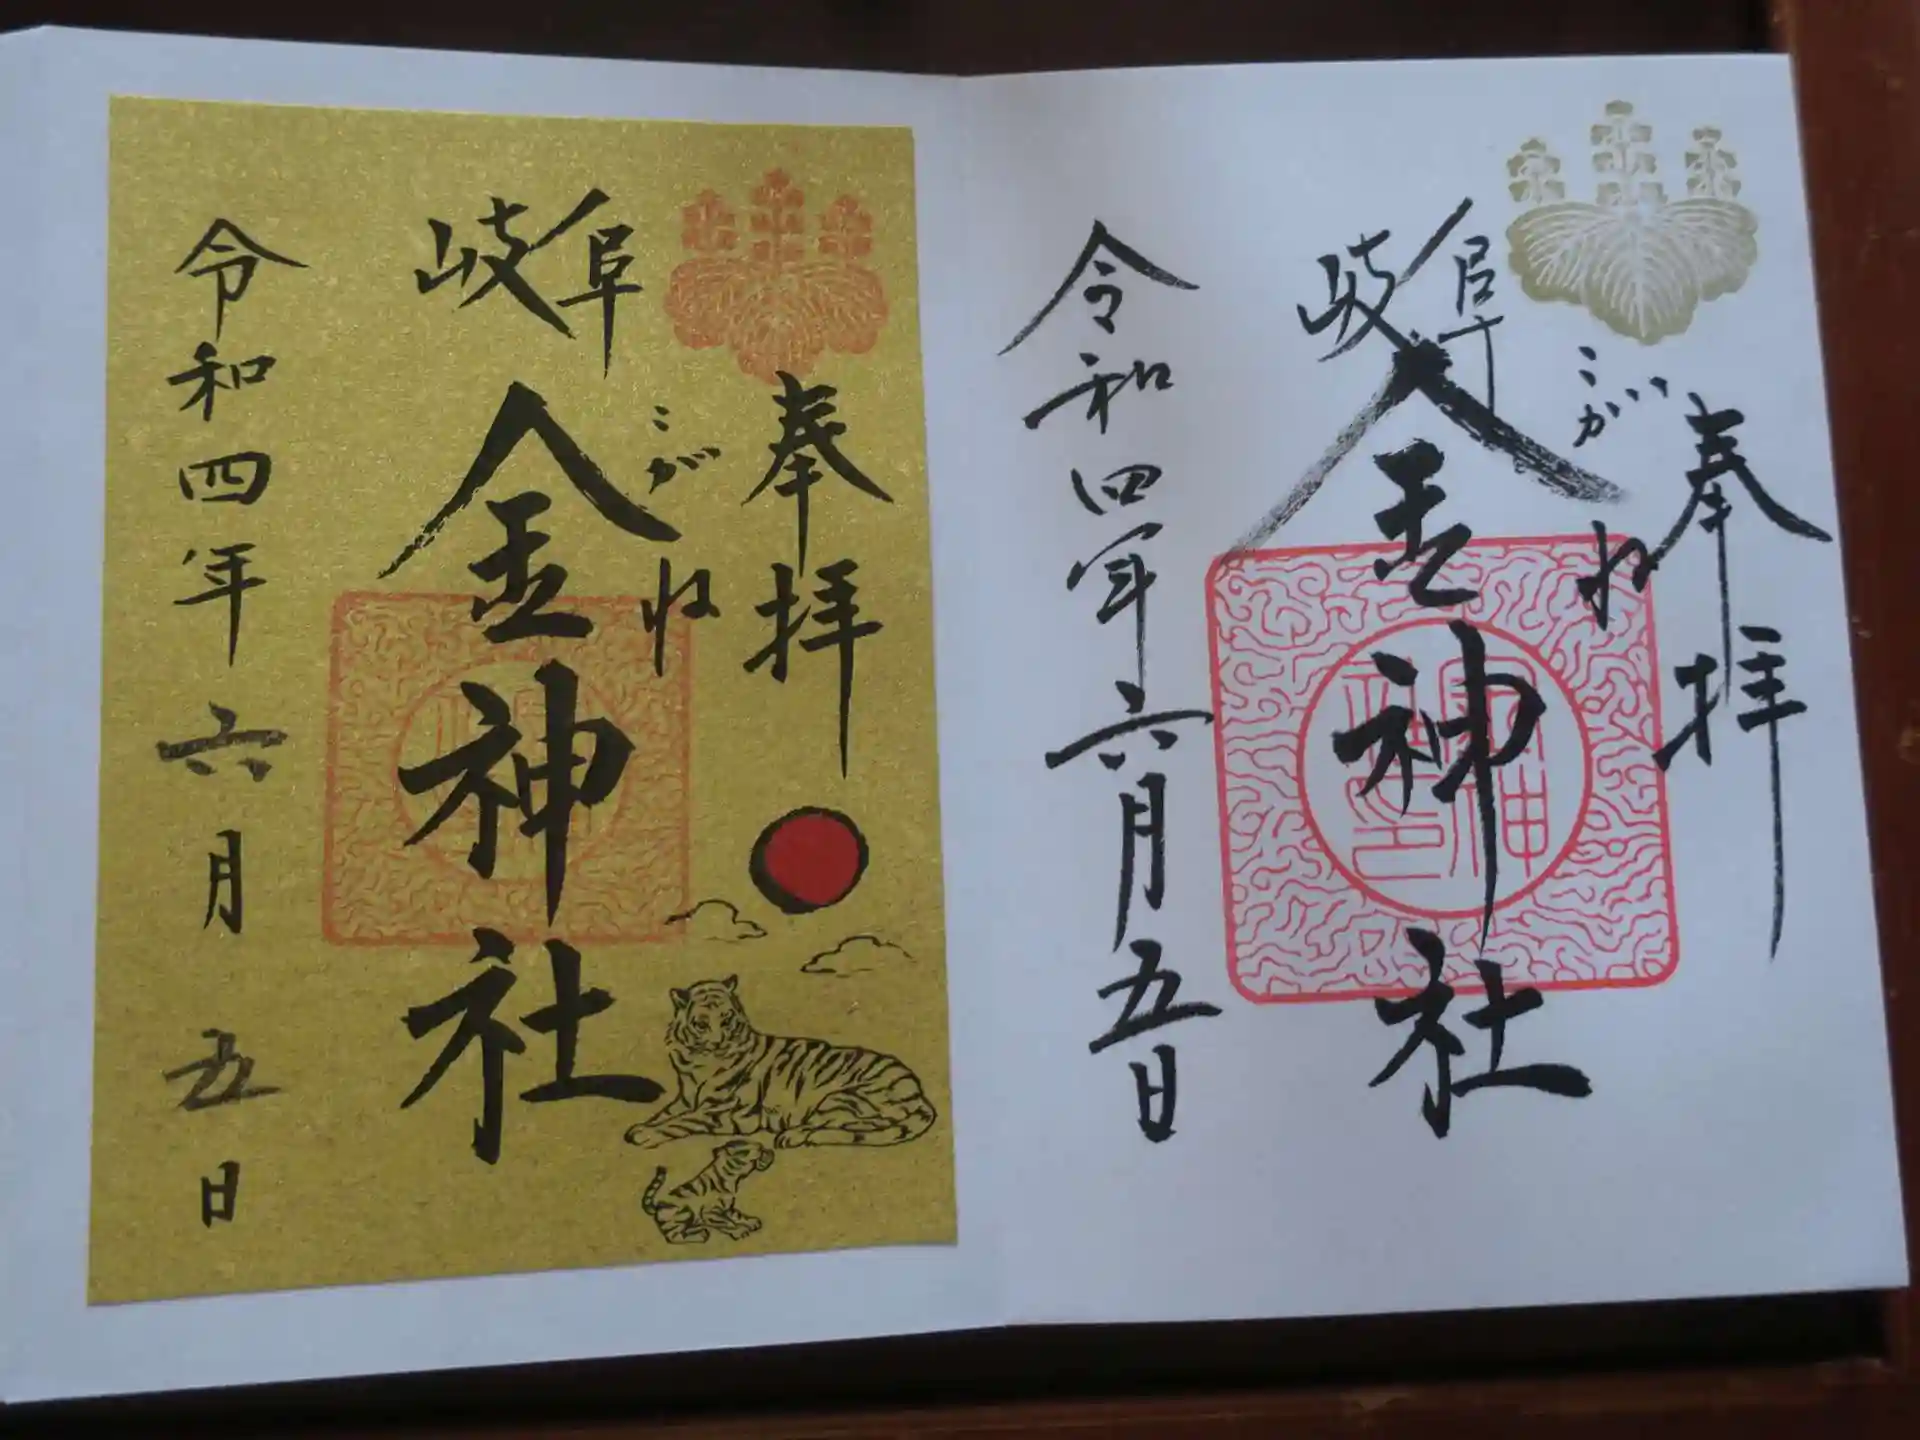 奉拝
こがね
岐阜
金神社
令和四年六月五日
奉拝
こがね
岐阜
金神社
令和四年六月五日